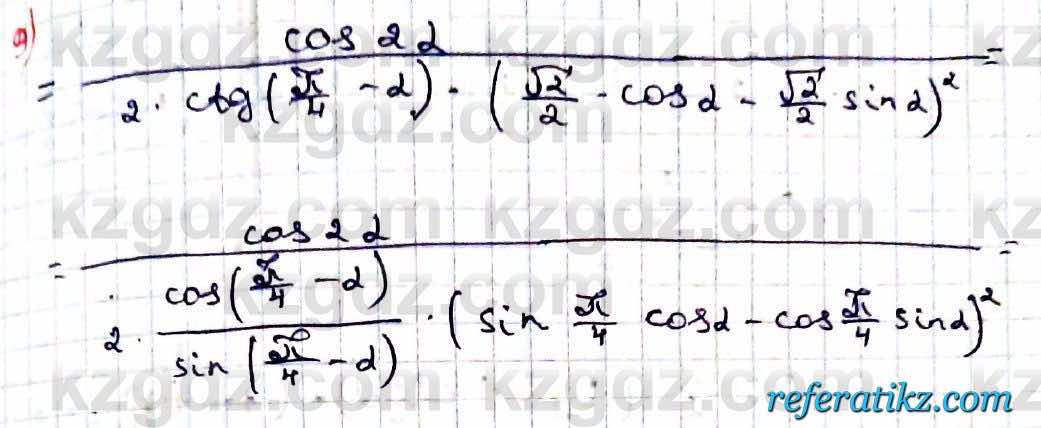 a)
= cos 2α / (2 · ctg(π/4 - α) · (√2/2 · cosα - √2/2 sinα)²) =
= cos 2α / (2 · cos(π/4 - α) / sin(π/4 - α) · (sin π/4 cosα - cos π/4 sinα)²) =
kzgdz.com
referatikz.com